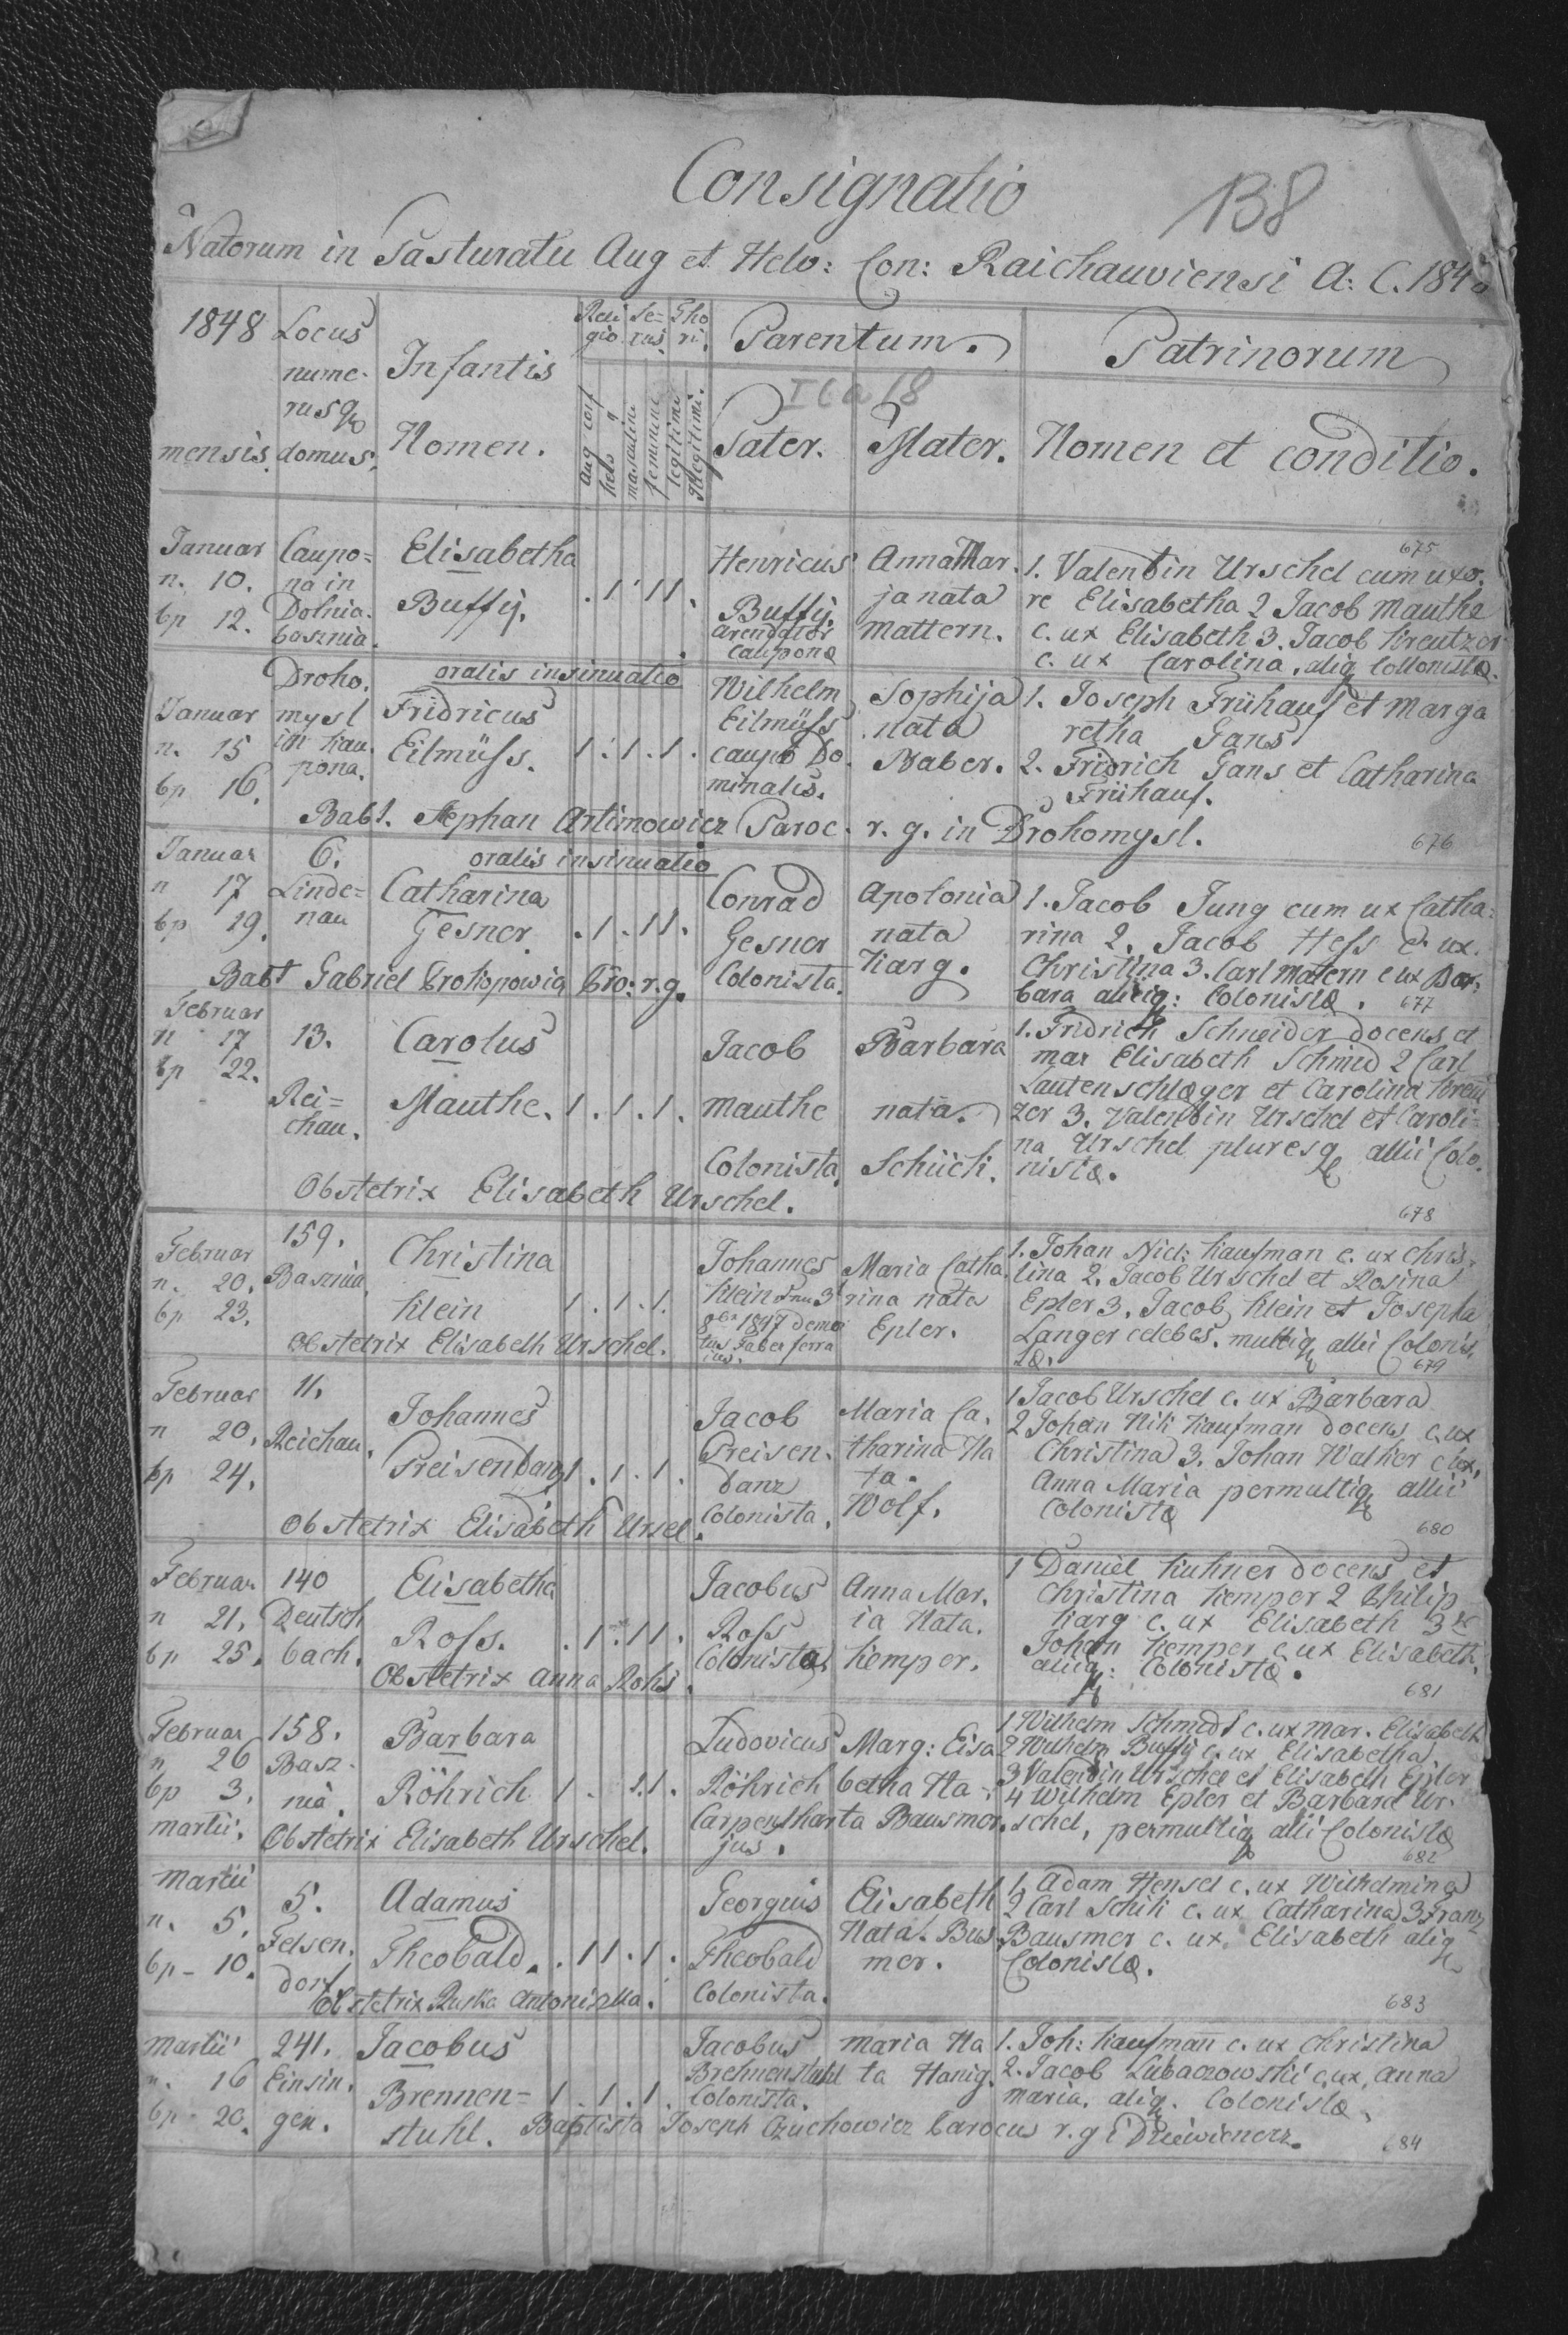 Consignatio
138
Natorum in Pasturatu Aug et Helv: Con: Raichauviensi A: C. 1848
1848
mensis.
Locus
nume-
rusq
domus.
Infantis
Nomen.
Reli
gio
Se-
xus.
Tho
ri.
aug conf
helv
masculini
feminini
legitimi
illegitimi.
Parentum.
Pater.
Mater.
Patrinorum
Nomen et conditio.
Januar
n. 10.
bp 12.
Caupo-
na in
Dolnia.
basznia.
Elisabetha
Buffÿ.
. 1 . 1 1 .
Henricus
Buffÿ.
arendator
cauponæ
Anna Mar.
ja nata
mattern.
675
1. Valentin Urschel cum uxo.
re Elisabetha 2 Jacob Mauthe
c. ux Elisabeth 3. Jacob Kreutzer
c. ux Carolina, aliq Collonistæ.
Januar
n. 15
bp 16.
Droho.
mysl
in kau.
pona.
oralis insinuatio
Fridricus
Eilmüss.
1 . 1 . 1 .
Wilhelm
Eilmüss
caupo Do.
minalis.
Sophija
nata
Baber.
1. Joseph Frühauf et Marga
retha Gans
2. Fridrich Gans et Catharina
Frühauf.
Babt. Stephan Artimowicz Paroc. r. g. in Drohomysl.
676
Januar
n 17
bp 19.
6.
Linde-
nau
oralis insinuatio
Catharina
Gesner.
. 1 . 1 1 .
Conrad
Gesner
Colonista.
Apolonia
nata
Karg.
1. Jacob Jung cum ux Catha:
rina 2. Jacob Hess c. ux.
Christina 3. Carl Matern c ux Bar:
bara aliiq: Colonistæ.
677
Babt Gabriel Prokopowicz Pro: r. g.
Februar
n 17
bp 22.
13.
Rei-
chau.
Carolus
Mauthe.
1 . 1 . 1 .
Jacob
mauthe
Colonista.
Barbara
nata.
Schück.
1. Fridrich Schneider docens et
mar Elisabeth Schmid 2 Carl
Lautenschlæger et Carolina Kreut
zer 3. Valentin Urschel et Caroli-
na Urschel pluresq allii Colo.
nistæ.
Obstetrix Elisabeth Urschel.
678
Februar
n. 20.
bp 23.
159.
Basznia
Christina
Klein
1 . 1 . 1 .
Johannes
8br 1847
tus Faber ferra
ius.
Maria Catha.
rina nata
Epler.
1. Johan Nick: Kaufman c. ux Chris-
tina 2. Jacob Urschel et Rosina
Epler 3. Jacob Klein et Josepha
Langer celebes. multiq allii Colonis.
tæ.
Obstetrix Elisabeth Urschel.
679
Februar
n 20.
bp 24.
11.
Reichau.
Johannes
Preisendanz
1 . 1 . 1 .
Jacob
Preisen.
danz
Colonista.
Maria Ca.
tharina Na
ta.
Wolf.
1 Jacob Urschel c. ux Barbara
2 Johan Nik Kaufman docens c. ux
Christina 3. Johan Walker c ux,
Anna Maria permultiq allii
Colonistæ
Obstetrix Elisabeth Ursel.
680
Februar.
n 21.
bp 25.
140
Deutsch
bach.
Elisabetha
Ross.
. 1 . 1 1 .
Jacobus
Ross
Colonista
Anna Mar.
ia Nata.
Kemper.
1 Daniel Kuhner docens et
Christina Kemper 2 Philip
Karg c. ux Elisabeth 3
Johan Kemper c. ux Elisabeth.
aliiq: Colonistæ.
Obstetrix Anna Rohs.
681
Februar
n 26
bp 3.
martii.
158.
Basz-
nia.
Barbara
Röhrich
1 . . 1.1 .
Ludovicus
Röhrich
Carpenthar
jus.
Marg: Elisa
betha Na-
ta Bausmer.
1 Wilhelm Schmidt c. ux mar. Elisabeth
2 Wilhelm Buffÿ c. ux Elisabetha
3 Valendin Urschel et Elisabeth Epler
4 Wilhelm Epler et Barbara Ur-
schel, permultiq alii Colonistæ
Obstetrix Elisabeth Urschel.
682
Martii
n. 5.
bp - 10.
5.
Felsen.
dorf
Adamus
Theobald.
. 1 1 . 1 .
Georguis
Theobald
Colonista.
Elisabeth
Nata. Bus
mer.
1. Adam Hensel c. ux Wilhelmina
2 Carl Schik c. ux Catharina 3 Franz
Bausmer c. ux. Elisabeth aliq
Colonistæ.
Obstetrix Ruska
683
Martii
n. 16
bp - 20.
241.
Einsin.
gen.
Jacobus
Brennen-
stuhl.
1 . 1 . 1 .
Jacobus
Brehnenstuhl
Colonista.
maria Na
ta Hanig.
1. Joh: Kaufman c. ux Christina
2. Jacob Lubaczowski c. ux, Anna
maria. aliq. Colonistæ.
Baptista Joseph Czuchowicz Parocus r. g i
684